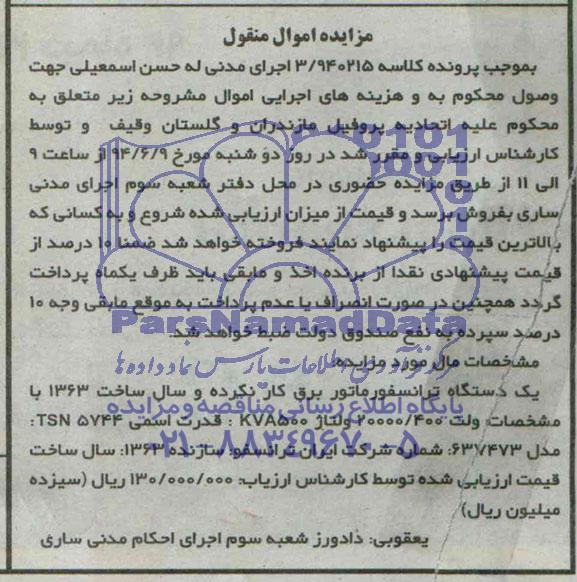 مزایده اموال منقول
بموجب پرونده کلاسه ۳/۹۴۰۲۱۵ اجرای مدنی له حسن اسمعیلی جهت
وصول محکوم به و هزینه های اجرایی اموال مشروحه زیر متعلق به
محکوم علیه اتحادیه پروفیل مازندران و گلستان وقیف و توسط
کارشناس ارزیابی و مقرر شد در روز دو شنبه مورخ ۹۴/۶/۹ از ساعت ۹
الی ۱۱ از طریق مزایده حضوری در محل دفتر شعبه سوم اجرای مدنی
ساری بفروش برسد و قیمت از میزان ارزیابی شده شروع و به کسانی که
بالاترین قیمت را پیشنهاد نمایند فروخته خواهد شد ضمنا ۱۰ درصد از
قیمت پیشنهادی نقدا از برنده اخذ و مابقی باید ظرف یکماه پرداخت
گردد همچنین در صورت انصراف یا عدم پرداخت به موقع مابقی وجه ۱۰
درصد سپرده به نفع صندوق دولت ضبط خواهد شد.
ParsNamadData
مشخصات مال مورد مزایده:
فرآوری اطلاعات پارس نماد داده ها
یک دستگاه ترانسفورماتور برق کار نکرده و سال ساخت ۱۳۶۳ با
پایگاه اطلاع رسانی مناقصه و مزایده
مشخصات: ولت ۲۰۰۰۰/۴۰۰ ولتاژ KVA۵۰۰ : قدرت اسمی TSN ۵۷۴۴:
۰۲۱-۸۸۳۴۹۶۷۰-۵
مدل ۶۳۷۴۷۳: شماره شرکت ایران ترانسفو: سازنده ۱۳۶۳: سال ساخت
قیمت ارزیابی شده توسط کارشناس ارزیاب: ۱۳۰/۰۰۰/۰۰۰ ریال (سیزده
میلیون ریال)
یعقوبی: دادورز شعبه سوم اجرای احکام مدنی ساری